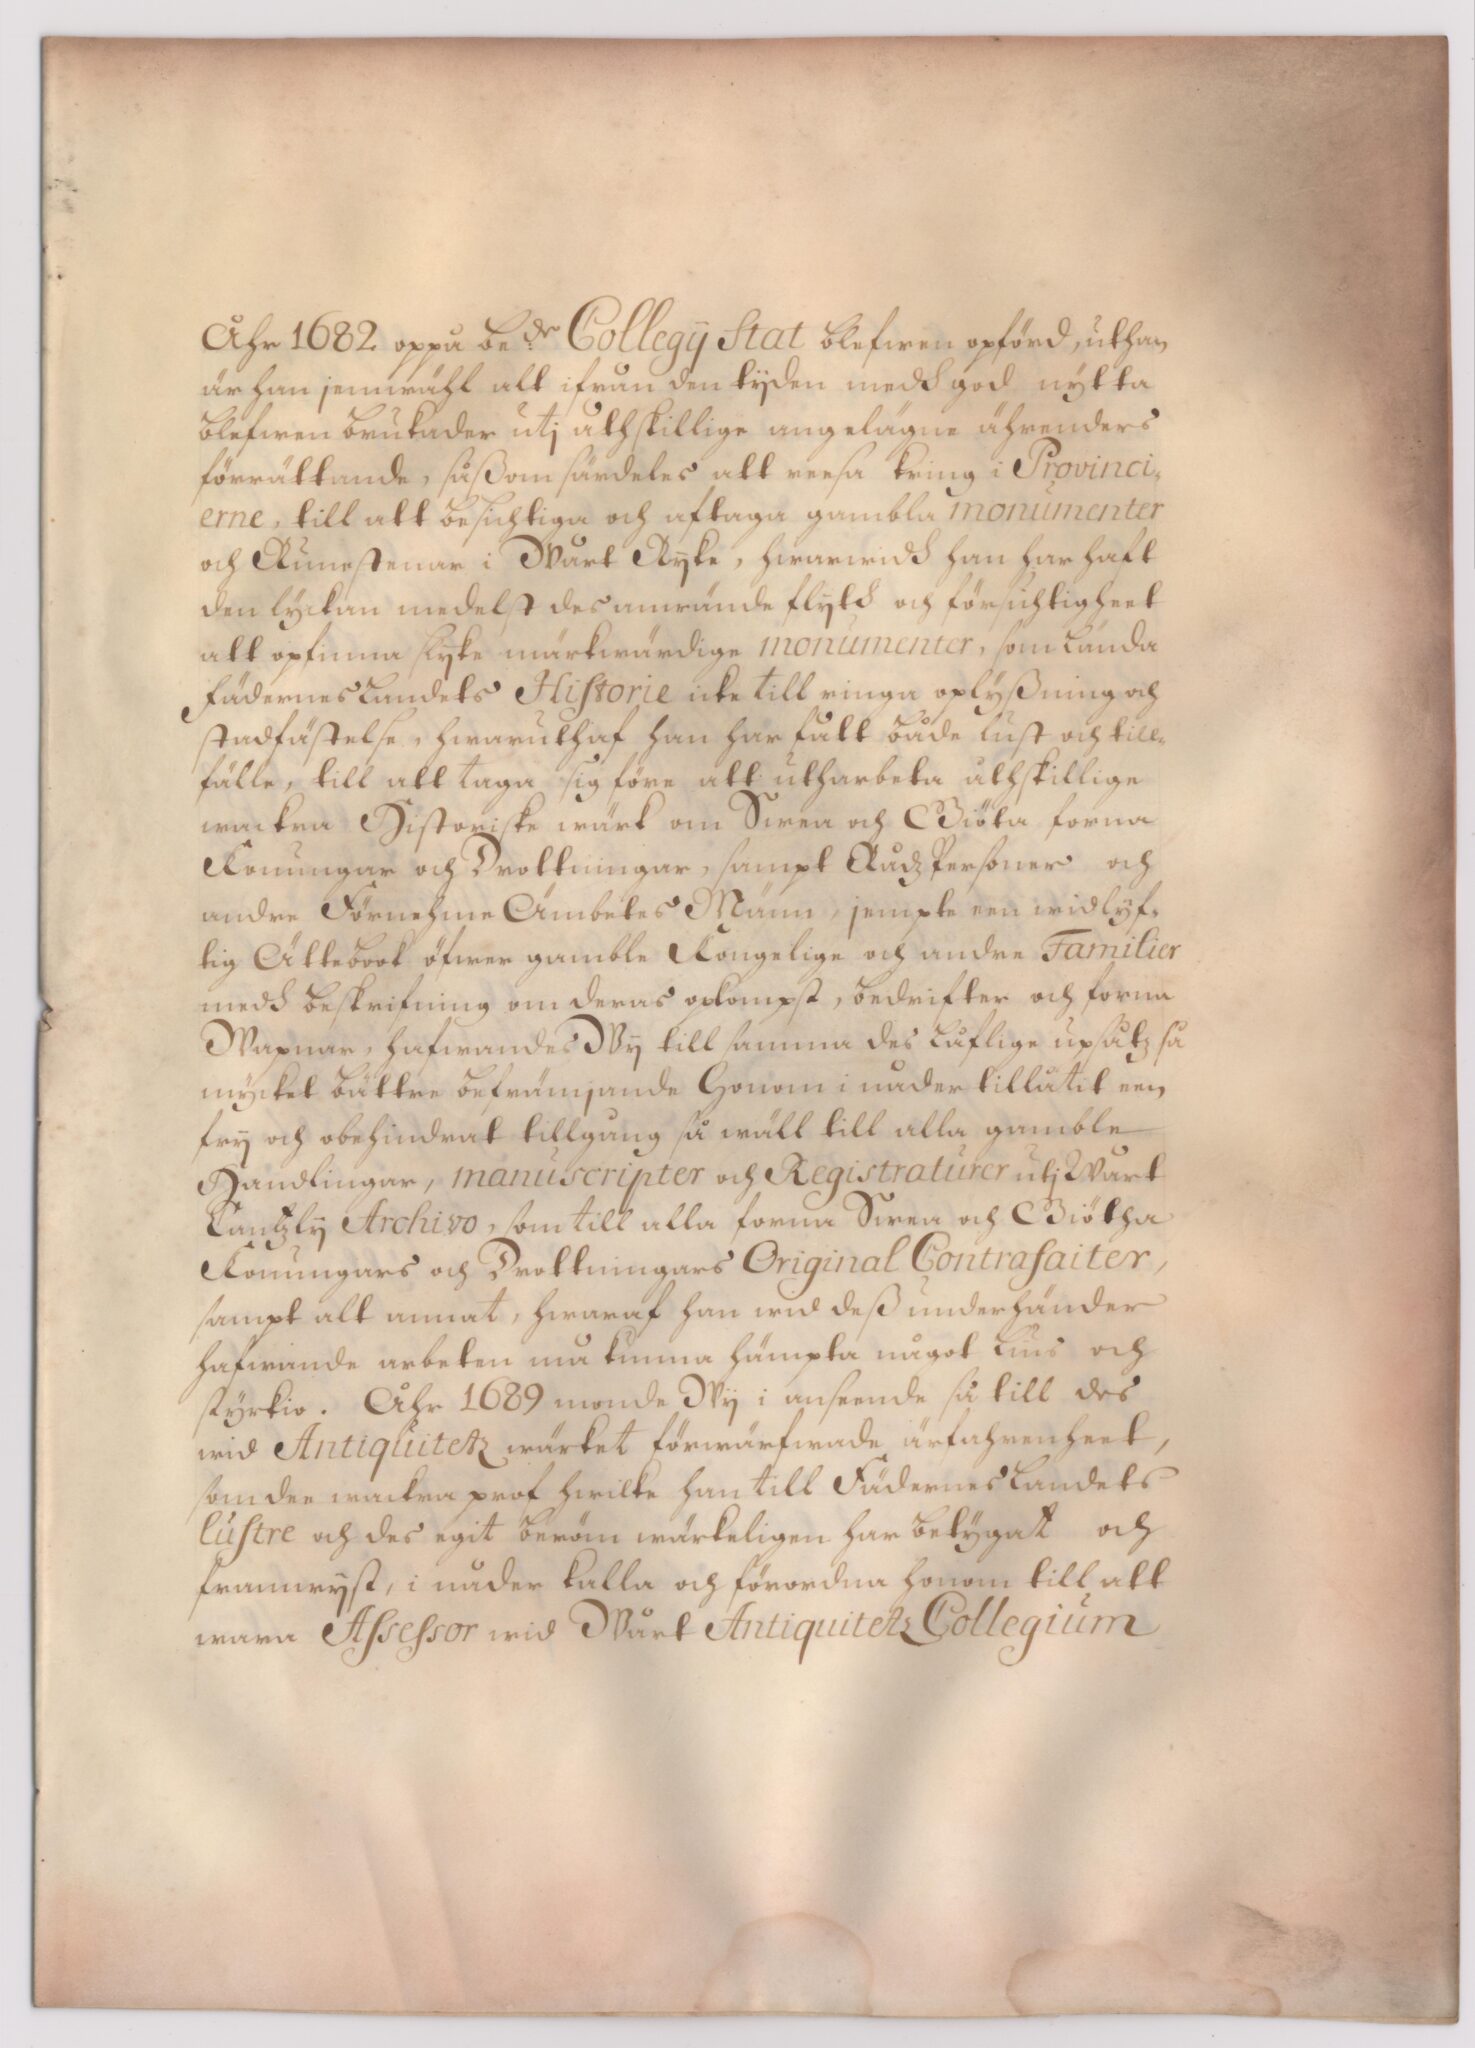 Åhr 1682 oppå be:de Collegij Stat blefwen opförd, uthan
är han jemwähl alt ifrån den tijden medh god nytta
blefwen brukader utj åthskillige angelägne ährenders
förrättande, såßom särdeles att reesa kring i Provinci-
erne, till att besichtiga och aftaga gambla monumenter
och Runestenar i Wårt Ryke, hwarwidh han har haft
den lyckan medelst des anwände flyth och försichtigheet
att opfinna slyke märkwärdige monumenter, som lända
FädernesLandets Historie icke till ringa oplyßning och
stadfästelse, hwaruthaf han har fått både lust och till-
fälle, till att taga sig före att utharbeta åthskillige
wackra Historiske wärk om Swea och Giöta forna
Konungar och Drottningar, sampt RådzPersoner och
andre Förnehme Ämbetes Männ, jempte een widlyf-
tig Ättebook öfwer gamble Kongelige och andre Familier
medh beskrifning om deras opkompst, bedrifter och forna
Wapnar, hafwandes Wij till samma des låflige upsåtz så
mycket bättre befrämjande Honom i nåder tillåtit een
frij och obehindrat tillgång så wäll till alla gamble
Handlingar, manuscripter och Registraturer utj Wårt
Cantzlij Archivo, som till alla forna Swea och Giötha
Konungars och Drottningars Original Contrafaiter,
sampt alt annat, hwaraf han wid deß underhänder
hafwande arbeten må kunna hämpta något Lius och
styrkio. Åhr 1689 monde Wij i anseende så till des
wid Antiquitetz wärket förwärfwade ärfahrenheet,
som dee wackra prof hwilke han till FädernesLandets
lustre och des egit beröm wärkeligen har betygat och
framwyst, i nåder kalla och förordna honom till att
wara Assessor wid Wårt Antiquitetz Collegium